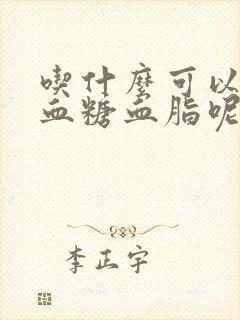 喫什麼可以
血糖血脂呢
李正宇